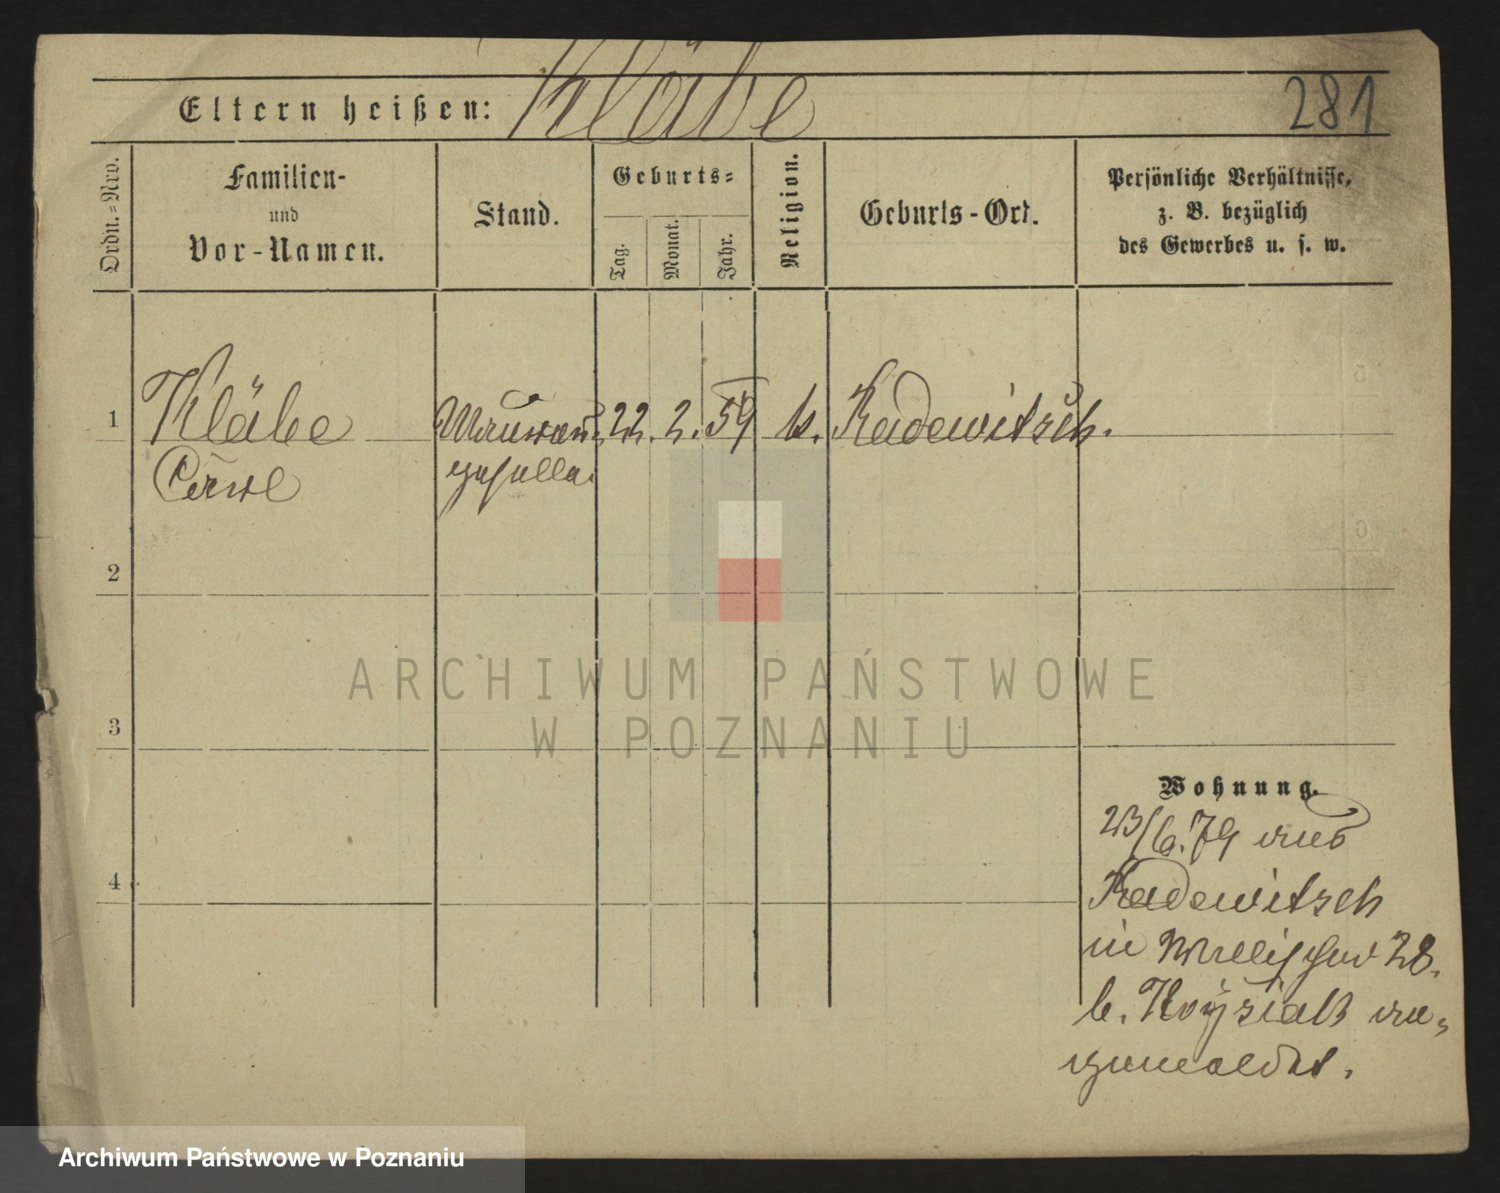 Eltern heißen: Kläbe 281
Ordn.=Nro.
Familien-
und
Vor-Namen.
Stand.
Geburts=
Tag.
Monat.
Jahr.
Religion.
Geburts-Ort.
Persönliche Verhältnisse,
z. B. bezüglich
des Gewerbes u. s. w.
1 Kläbe Maurer 22. 2. 59 k. Radewitsch.
Carl geselle.
2
3
4
ARCHIWUM PAŃSTWOWE
W POZNANIU
Wohnung.
23/6. 79 aus
Radewitsch
in Wallischei 28.
b. Koÿsiak an=
gemeldet.
Archiwum Państwowe w Poznaniu